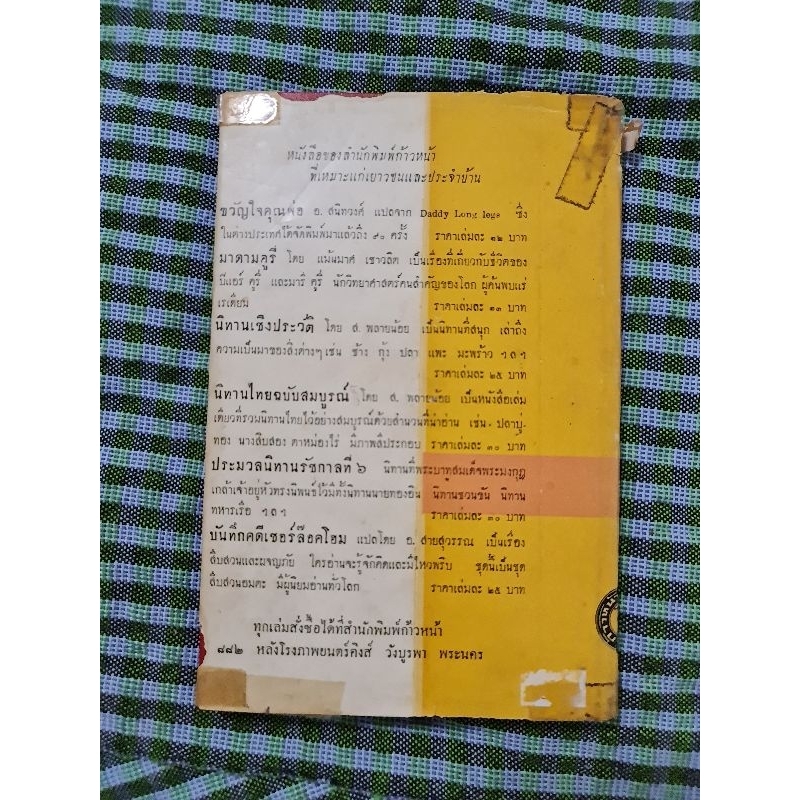 หนังสือของสำนักพิมพ์ก้าวหน้า
ที่เหมาะแก่เยาวชนและประจำบ้าน
ขวัญใจคุณพ่อ อ. สนิทวงศ์ แปลจาก Daddy Long legs ซึ่ง
ในต่างประเทศได้จัดพิมพ์มาแล้วถึง ๙๐ ครั้ง ราคาเล่มละ ๑๒ บาท
มาดามคูรี่ โดย แม้นมาศ เชาวลิต เป็นเรื่องที่เกี่ยวกับชีวิตของ
ปีแอร์ คูรี่ และมารี คูรี่ นักวิทยาศาสตร์คนสำคัญของโลก ผู้ค้นพบแร่
เรเดียม ราคาเล่มละ ๑๓ บาท
นิทานเชิงประวัติ โดย ส. พลายน้อย เป็นนิทานที่สนุก เล่าถึง
ความเป็นมาของสิ่งต่างๆ เช่น ช้าง กุ้ง ปลา แพะ มะพร้าว ฯลฯ
ราคาเล่มละ ๒๕ บาท
นิทานไทยฉบับสมบูรณ์ โดย ส. พลายน้อย เป็นหนังสือเล่ม
เดียวที่รวมนิทานไทยไว้อย่างสมบูรณ์ด้วยสำนวนที่น่าอ่าน เช่น ปลาบู่-
ทอง นางสิบสอง ตาหม่องไร่ มีภาพสีประกอบ ราคาเล่มละ ๓๐ บาท
ประมวลนิทานรัชกาลที่ ๖ นิทานที่พระบาทสมเด็จพระมงกุฎ
เกล้าเจ้าอยู่หัวทรงนิพนธ์ไว้มีทั้งนิทานนายทองอิน นิทานชวนขัน นิทาน
ทหารเรือ ฯลฯ ราคาเล่มละ ๓๐ บาท
บันทึกคดีเชอร์ล๊อคโฮม แปลโดย อ. สายสุวรรณ เป็นเรื่อง
สืบสวนและผจญภัย ใครอ่านจะรู้จักคิดและมีไหวพริบ ชุดนี้เป็นชุด
สืบสวนอมตะ มีผู้นิยมอ่านทั่วโลก ราคาเล่มละ ๒๕ บาท
ทุกเล่มสั่งซื้อได้ที่สำนักพิมพ์ก้าวหน้า
๘๘๒ หลังโรงภาพยนตร์คิงส์ วังบูรพา พระนคร